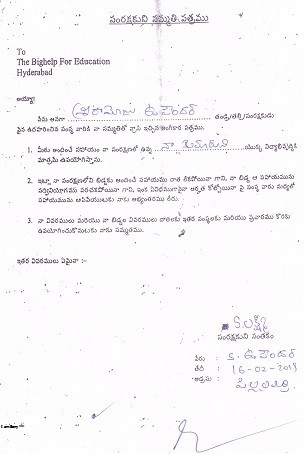 సంరక్షకుని సమ్మతి పత్రము
To
The Bighelp For Education
Hyderabad
అయ్యా!
శ్రీరాముల ఉపేందర్
నేను అనగా తండ్రి/తల్లి/సంరక్షకుడు
పైన ఉదహరించిన సంస్థ వారికి నా సమ్మతితో వ్రాసి ఇచ్చిన అంగీకార పత్రము.
1. మీరు అందించే సహాయం నా సంరక్షణలో ఉన్న నా కుమారుని యొక్క విద్యాభివృద్ధికి
మాత్రమే ఉపయోగిస్తాను.
2. ఇట్లా నా సంరక్షణలోని బిడ్డకు అందించే సహాయము రాత శికపోయినా గాని, నా బిడ్డ ఆ సహాయమును
సద్వినియోగము పరచకపోయినా గాని, ఇంక ఏవిధముగానైనా అర్హత కోల్పోయినా పై సంస్థ వారు మధ్యలో
సహాయమును ఆపివేయుటకు నాకు అభ్యంతరము లేదు.
3. నా వివరములు మరియు నా బిడ్డల వివరములు దాతలకు ఇతర సంస్థలకు మరియు ప్రచారము కొరకు
ఉపయోగించుకొనుటకు నాకు సమ్మతము.
ఇతర వివరములు ఏమైనా :-
S. లక్ష్మి
సంరక్షకుని సంతకం
పేరు : S. ఉపేందర్
తేదీ : 16-02-2019
అడ్రసు : పిల్లలమర్రి